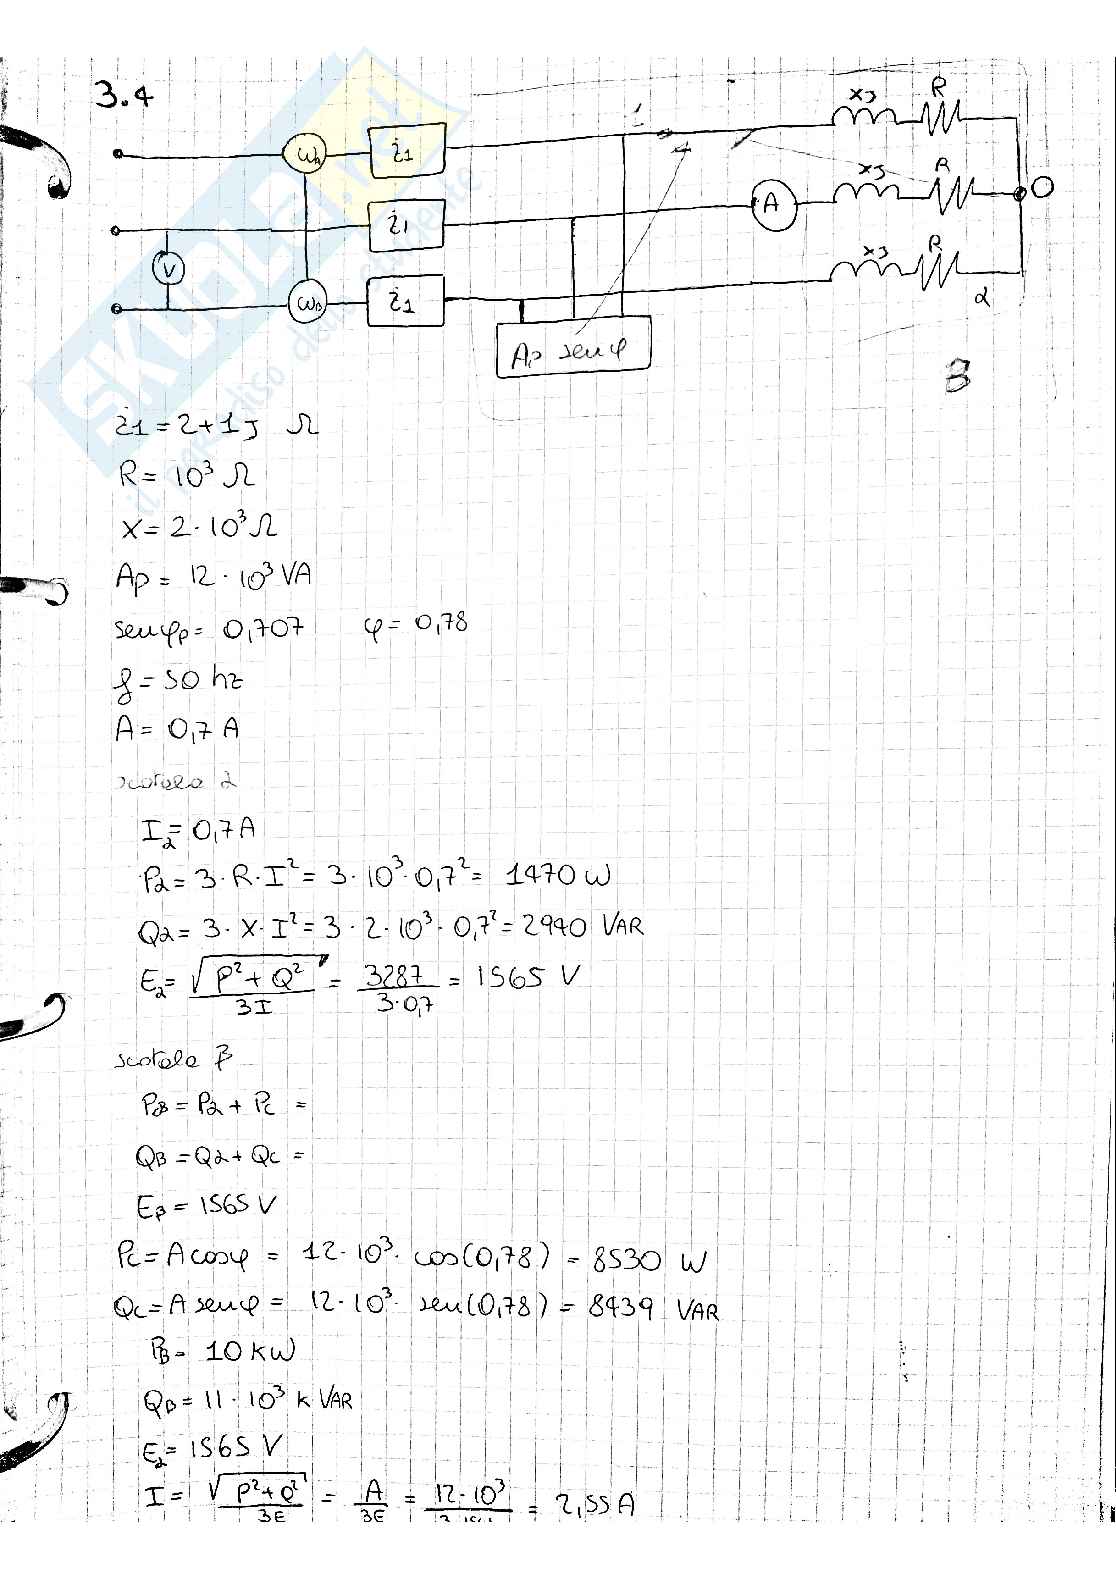 3.4
XJ R
Wa ż1
XJ R
ż1 A O
V
XJ R
WB ż1
α
Ap senφ
B
ż1 = 2+1J Ω
R = 10³ Ω
X = 2·10³ Ω
Ap = 12·10³ VA
senφp = 0,707 φ = 0,78
f = 50 hz
A = 0,7 A
scatola α
Iα = 0,7A
Pα = 3·R·I² = 3·10³·0,7² = 1470 W
Qα = 3·X·I² = 3·2·10³·0,7² = 2940 VAR
Eα = √(P²+Q²) / 3I = 3287 / 3·0,7 = 1565 V
scatola β
PB = Pα + Pc =
QB = Qα + Qc =
Eβ = 1565 V
Pc = A cosφ = 12·10³·cos(0,78) = 8530 W
Qc = A senφ = 12·10³·sen(0,78) = 8439 VAR
PB = 10 KW
QB = 11·10³ K VAR
Eα = 1565 V
I = √(P²+Q²) / 3E = A / 3E = 12·10³ / = 2,55 A
SKUOLA.net